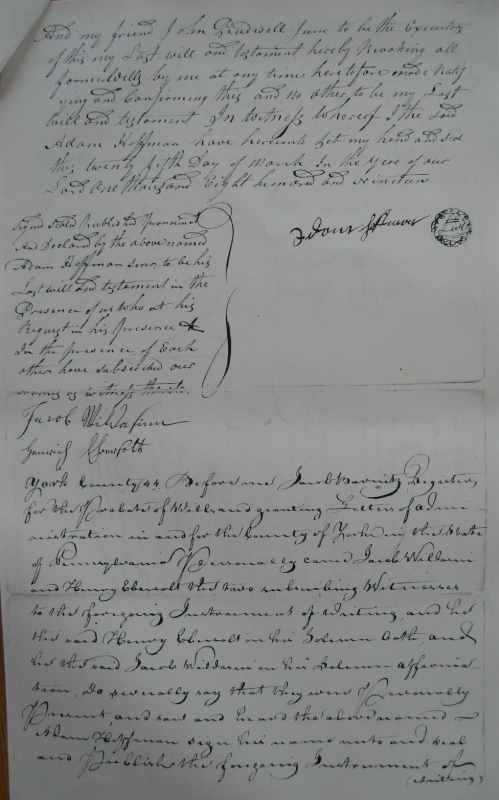 And my friend John Treadwell June to be the Executors
of this my Last will and testament hereby Revoking all
former wills by me at any time heretofore made Ratif
ying and Confirming this and no other to be my Last
will and testament In witness whereof I the Said
Adam Hoffman have hereunto Set my hand and seal
this twenty fifth Day of March In the Year of our
Lord One thousand Eight hundred and Nineteen
Signed Seald Published Pronounced
And Declared by the above named
Adam Hoffman senr. to be his
Last will and testament in the
Presence of us who at his
Request in his presence &
In the presence of Each
other have subscribed our
names as witness thereto.
Adam Hoffman
Jacob Wildasinn
Heinrich Ebersolt
York County ss. Before me Jacob Barnitz Register
for the Probate of Wills and granting Letters of Admi
nistration in and for the County of York in the State
of Pennsylvania Personally came Jacob Wildasin
and Henry Ebersolt the two subscribing Witnesses
to the foregoing Instrument of Writing, and he
the said Henry Ebersolt on his Solemn Oath and
he the said Jacob Wildasin on his Solemn affirma
tion, do severally say that they were Personally
Present, and saw and heard the above named
Adam Hoffman sign his name unto and seal
and Publish the foregoing Instrument of
(writing)